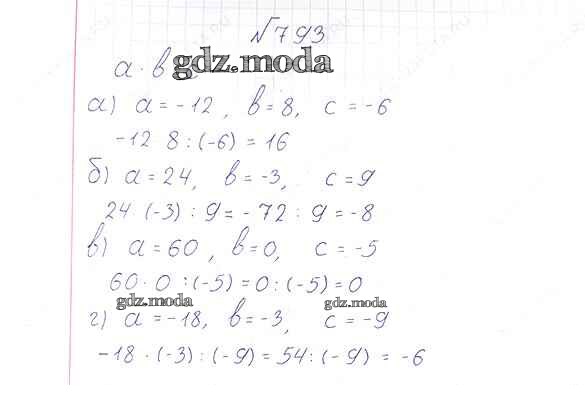 №793
а · в
gdz.moda
а) а = -12, в = 8, с = -6
-12 8 : (-6) = 16
б) а = 24, в = -3, с = 9
24 (-3) : 9 = -72 : 9 = -8
в) а = 60, в = 0, с = -5
60 · 0 : (-5) = 0 : (-5) = 0
gdz.moda gdz.moda
г) а = -18, в = -3, с = -9
-18 · (-3) : (-9) = 54 : (-9) = -6